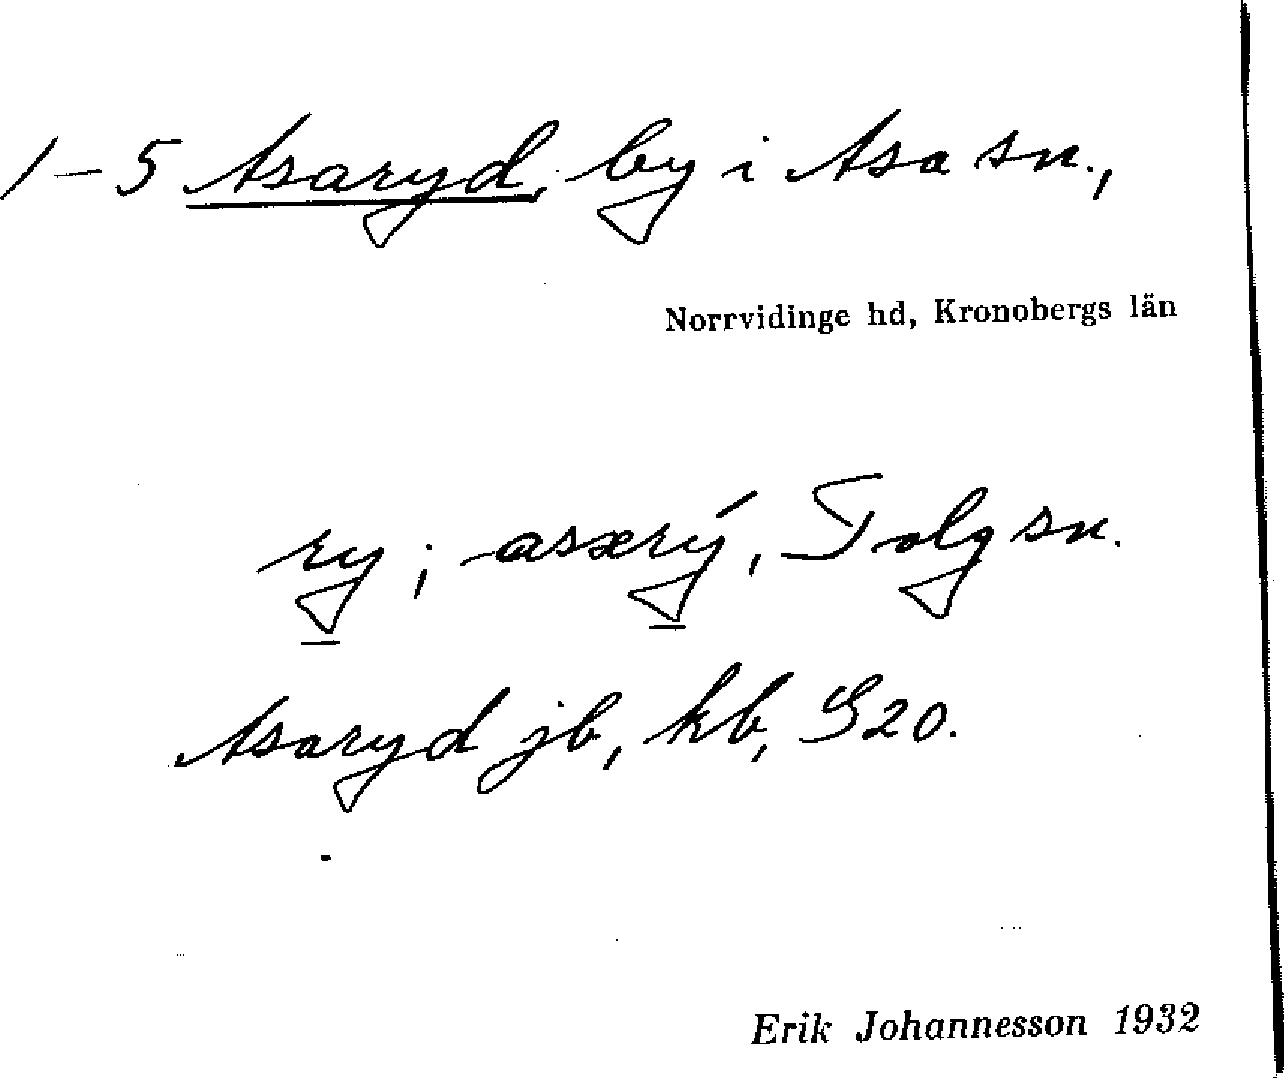 1-5 Asaryd, by i Asa sn.,
Norrvidinge hd, Kronobergs län
ry; asærý, Tolg sn.
Asaryd jb, kb, G20.
Erik Johannesson 1932